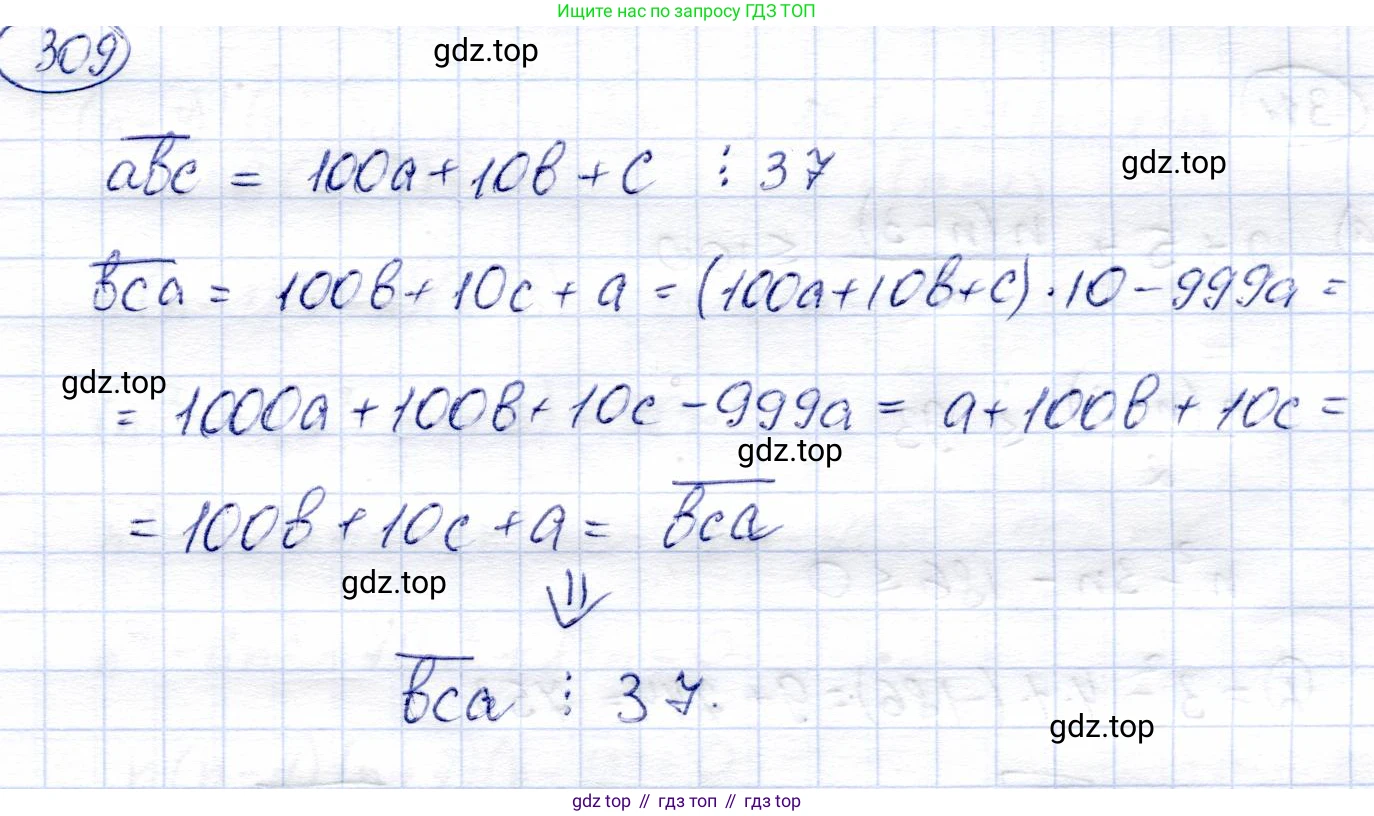 Ищите нас по запросу ГДЗ ТОП
309
gdz.top
abc = 100a + 10b + c ⋮ 37
gdz.top
bca = 100b + 10c + a = (100a + 10b + c) · 10 - 999a =
gdz.top
= 1000a + 100b + 10c - 999a = a + 100b + 10c =
gdz.top
= 100b + 10c + a = bca
gdz.top
⇓
bca ⋮ 37.
gdz.top
gdz top // гдз топ // гдз top